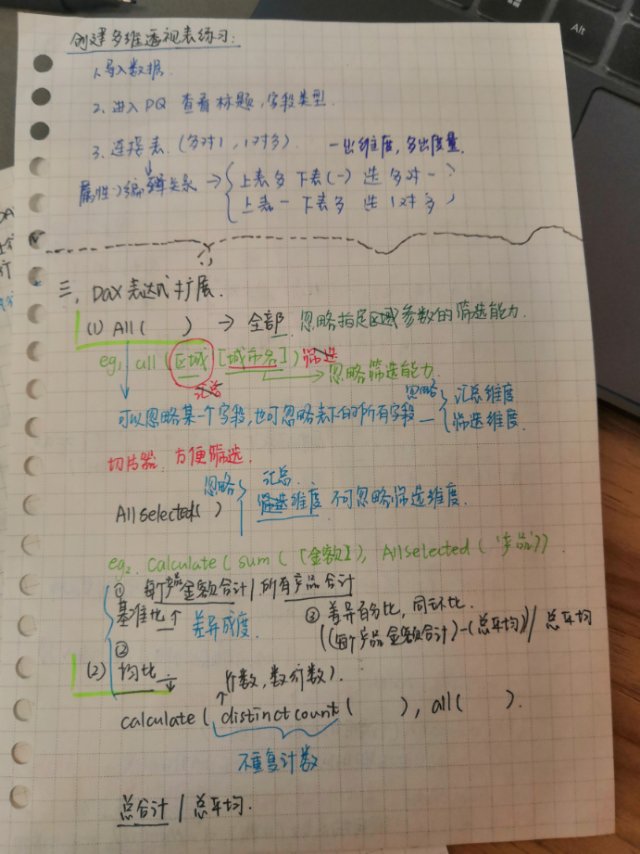 创建多维透视表练习:
1.导入数据
2.进入PQ 查看标题,字段类型.
3.连接表.(多对1,1对多) 一出维度,多出度量.
属性>编辑关系→ 上表多 下表(一) 选 多对一
上表一 下表多 选 1对多
三、Dax表达式扩展.
(1) All( ) → 全部 忽略指定区域参数的筛选能力.
eg1 all(区域[城市名]) 筛选
→忽略筛选能力.
汇总 忽略 汇总维度
可以忽略某个字段,也可忽略表下的所有字段— 筛选维度.
切片器.方便筛选.
忽略 汇总.
Allselected( ) 筛选维度 不可忽略筛选维度.
eg2. Calculate(sum([金额]), Allselected('产品'))
① 每个产品金额合计/所有产品合计
基准比↑ 差异成度. ③ 差异百分比,同环比.
((每个产品金额合计)-(总平均))/总平均
②
(2) 均比 (个数,数行数).
calculate( distinctcount( ), all( ).
不重复计数
总合计/总平均.